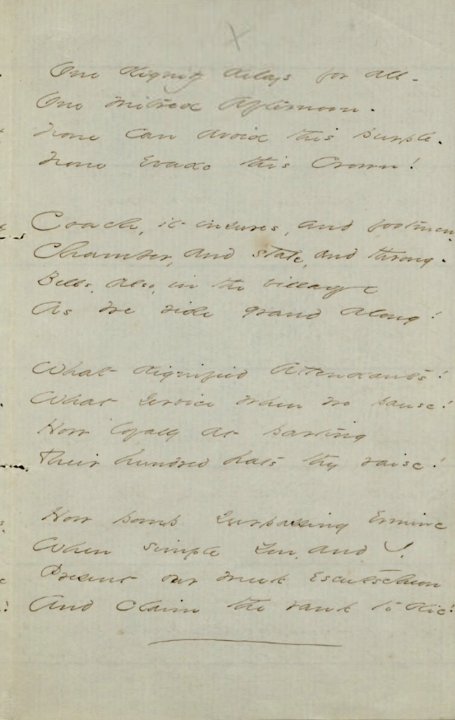 One dignity delays for all -
One mitred Afternoon -
None can avoid this purple -
None Evade this Crown!
Coach, it insures, and footmen
Chamber, and state, and throng -
Bells, also, in the village
As we ride grand along!
What dignified Attendants!
What service when we pause!
How loyally at parting
Their hundred hats they raise!
How pomp surpassing Ermine
When simple You, and I,
Present our meek Escutscheon
And claim the rank to die!